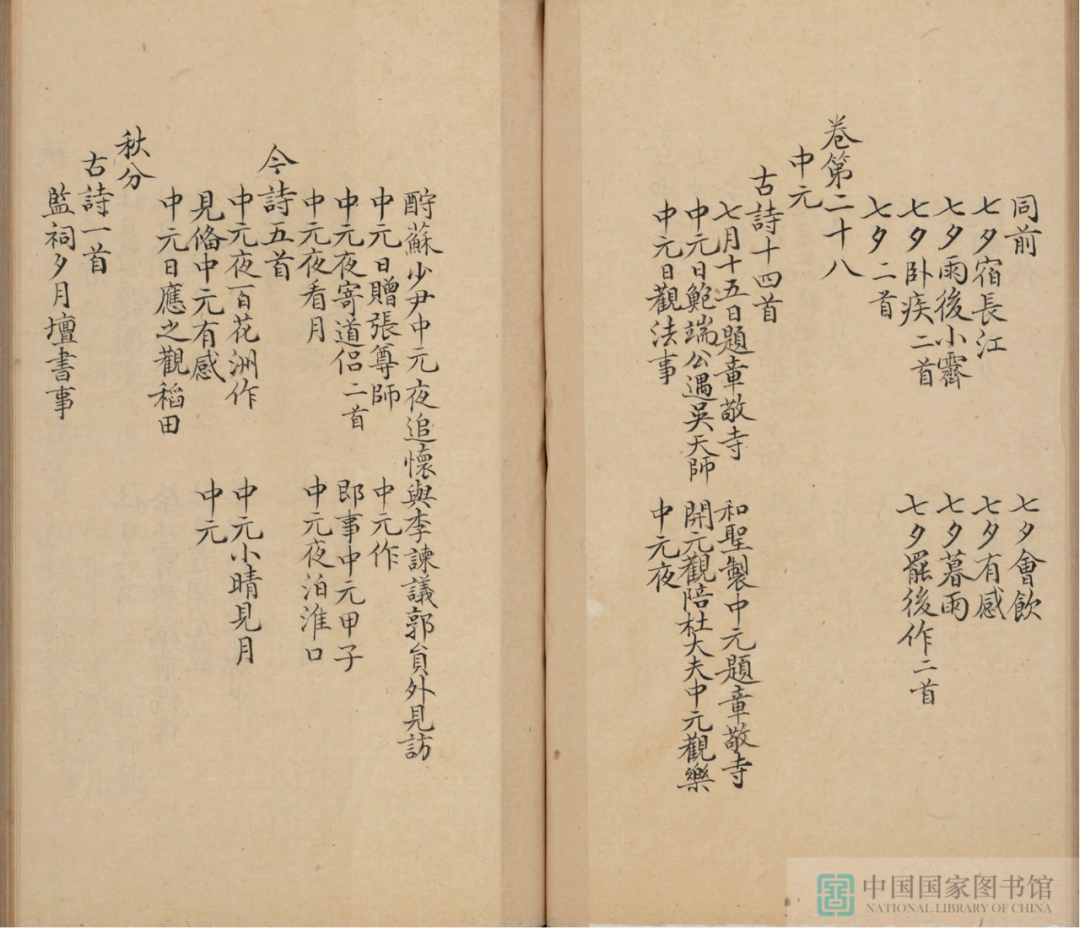 同前 七夕會飲
七夕宿長江 七夕有感
七夕雨後小霽 七夕暮雨
七夕卧疾二首 七夕罷後作二首
七夕二首
卷第二十八
中元
古詩十四首
七月十五日題章敬寺 和聖製中元題章敬寺
中元日鮑端公遇吳天師 開元觀陪杜大夫中元觀樂
中元日觀法事 中元夜
酧蘇少尹中元夜追懷與李諫議郭貟外見訪
中元日贈張尊師 中元作
中元夜寄道侶二首 即事中元甲子
中元夜看月 中元夜泊淮口
今詩五首
中元夜百花洲作 中元小晴見月
見脩中元有感 中元
中元日應之觀稻田
秋分
古詩一首
監祠夕月壇書事
中国国家图书馆
NATIONAL LIBRARY OF CHINA